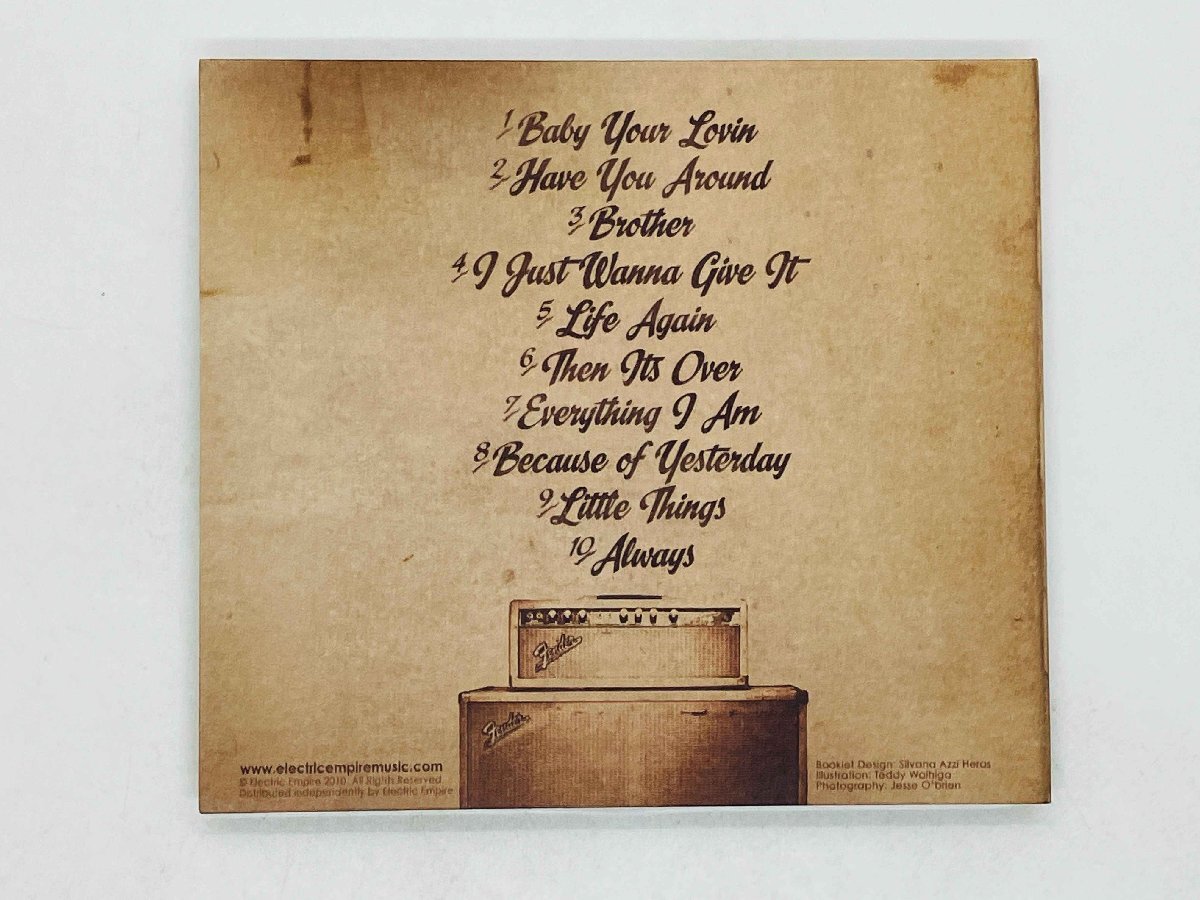 1/ Baby Your Lovin
2/ Have You Around
3/ Brother
4/ I Just Wanna Give It
5/ Life Again
6/ Then Its Over
7/ Everything I Am
8/ Because of Yesterday
9/ Little Things
10/ Always
Fender
Fender
www.electricempiremusic.com
© Electric Empire 2010. All Rights Reserved
Distributed independently by Electric Empire
Booklet Design: Silvana Azzi Heras
Illustration: Teddy Waihiga
Photography: Jesse O'brien